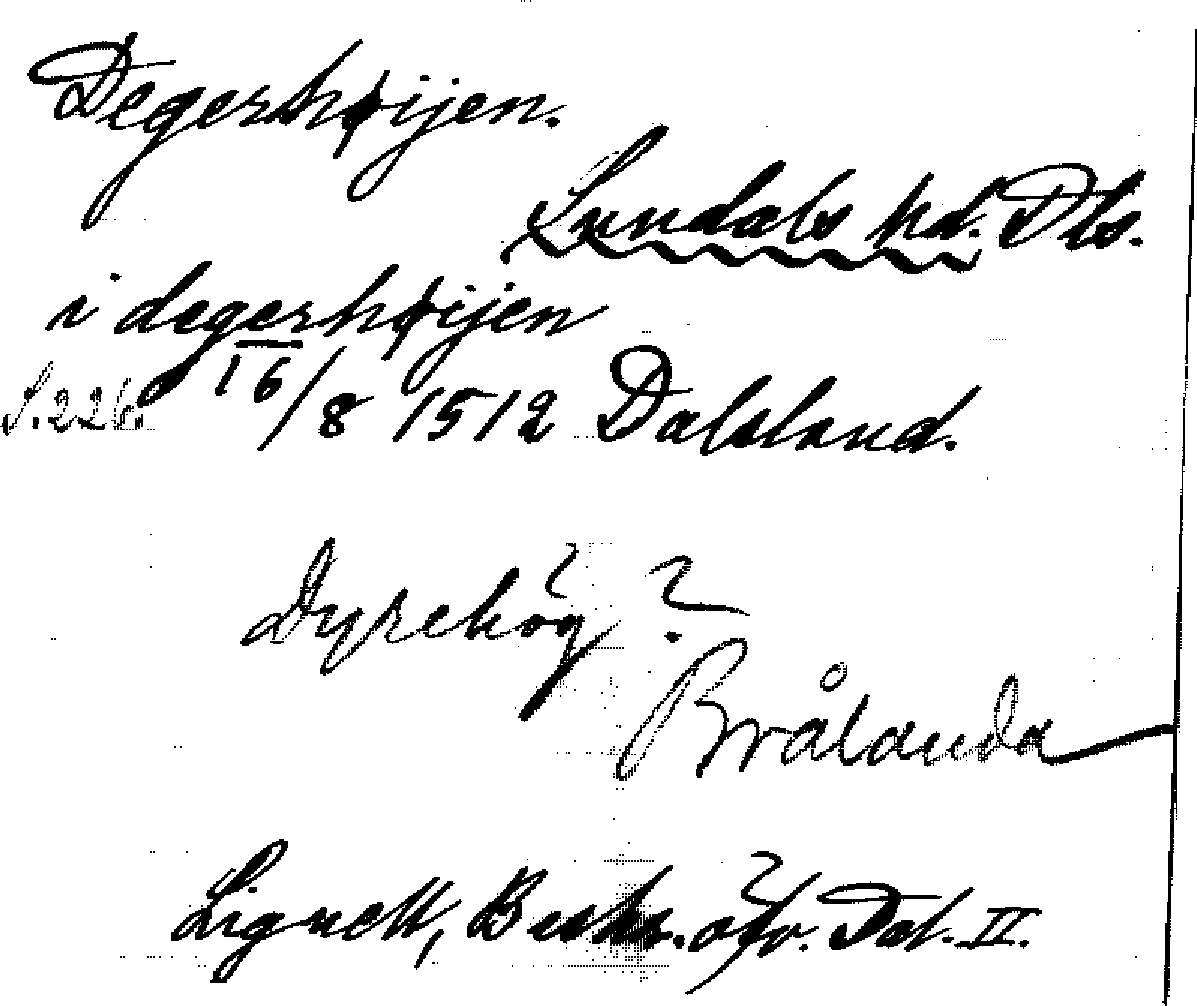 Degerhøijen.
Sundals hd. Dls.
i degerhøijen
S. 226. 16/8 1512 Dalsland.
Dyrehög ?
Brålanda
Lignell, Beskr. öfv. Dal. II.